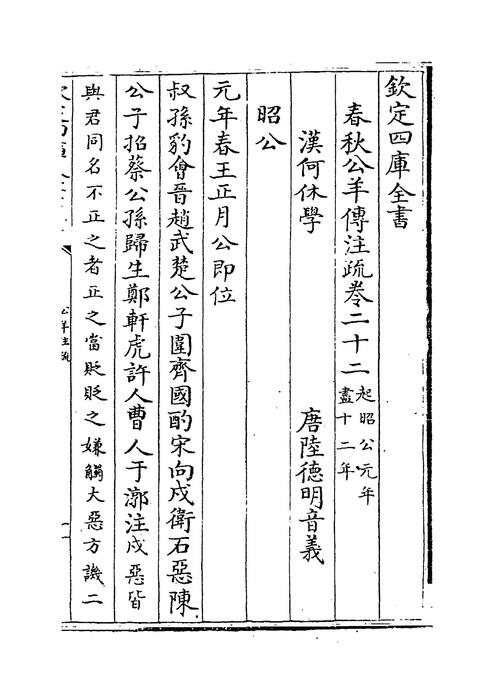 欽定四庫全書
春秋公羊傳注疏卷二十二 起昭公元年
盡十二年
漢何休學 唐陸德明音義
昭公
元年春王正月公即位
叔孫豹會晉趙武楚公子圍齊國酌宋向戍衛石惡陳
公子招蔡公孫歸生鄭軒虎許人曹人于漷注戍惡皆
與君同名不正之者正之當貶貶之嫌觸大惡方譏二
公羊注疏